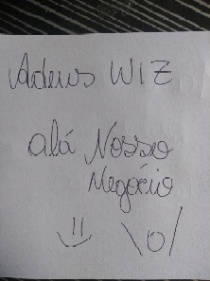 Adeus WIZ
alá Nosso
Negócio
=) \o/